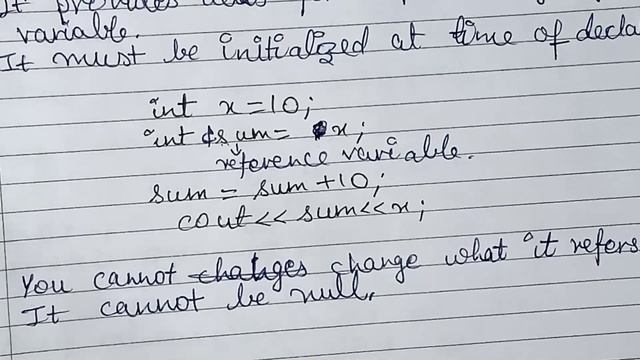 It provides
variable.
It must be initialized at time of decla
int x=10;
int &sum= x;
reference variable.
sum = sum+10;
cout<<sum<<x;
You cannot change what it refers
It cannot be null.